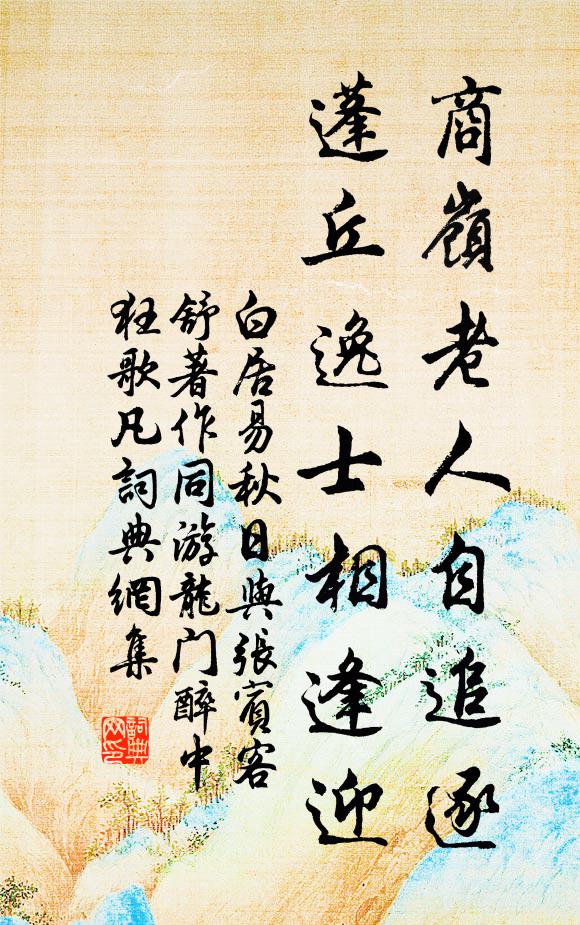 商嶺老人自追逐
蓬丘逸士相逢迎
白居易秋日與張賓客
舒著作同游龍门醉中
狂歌凡詞典網集
詞典
网印